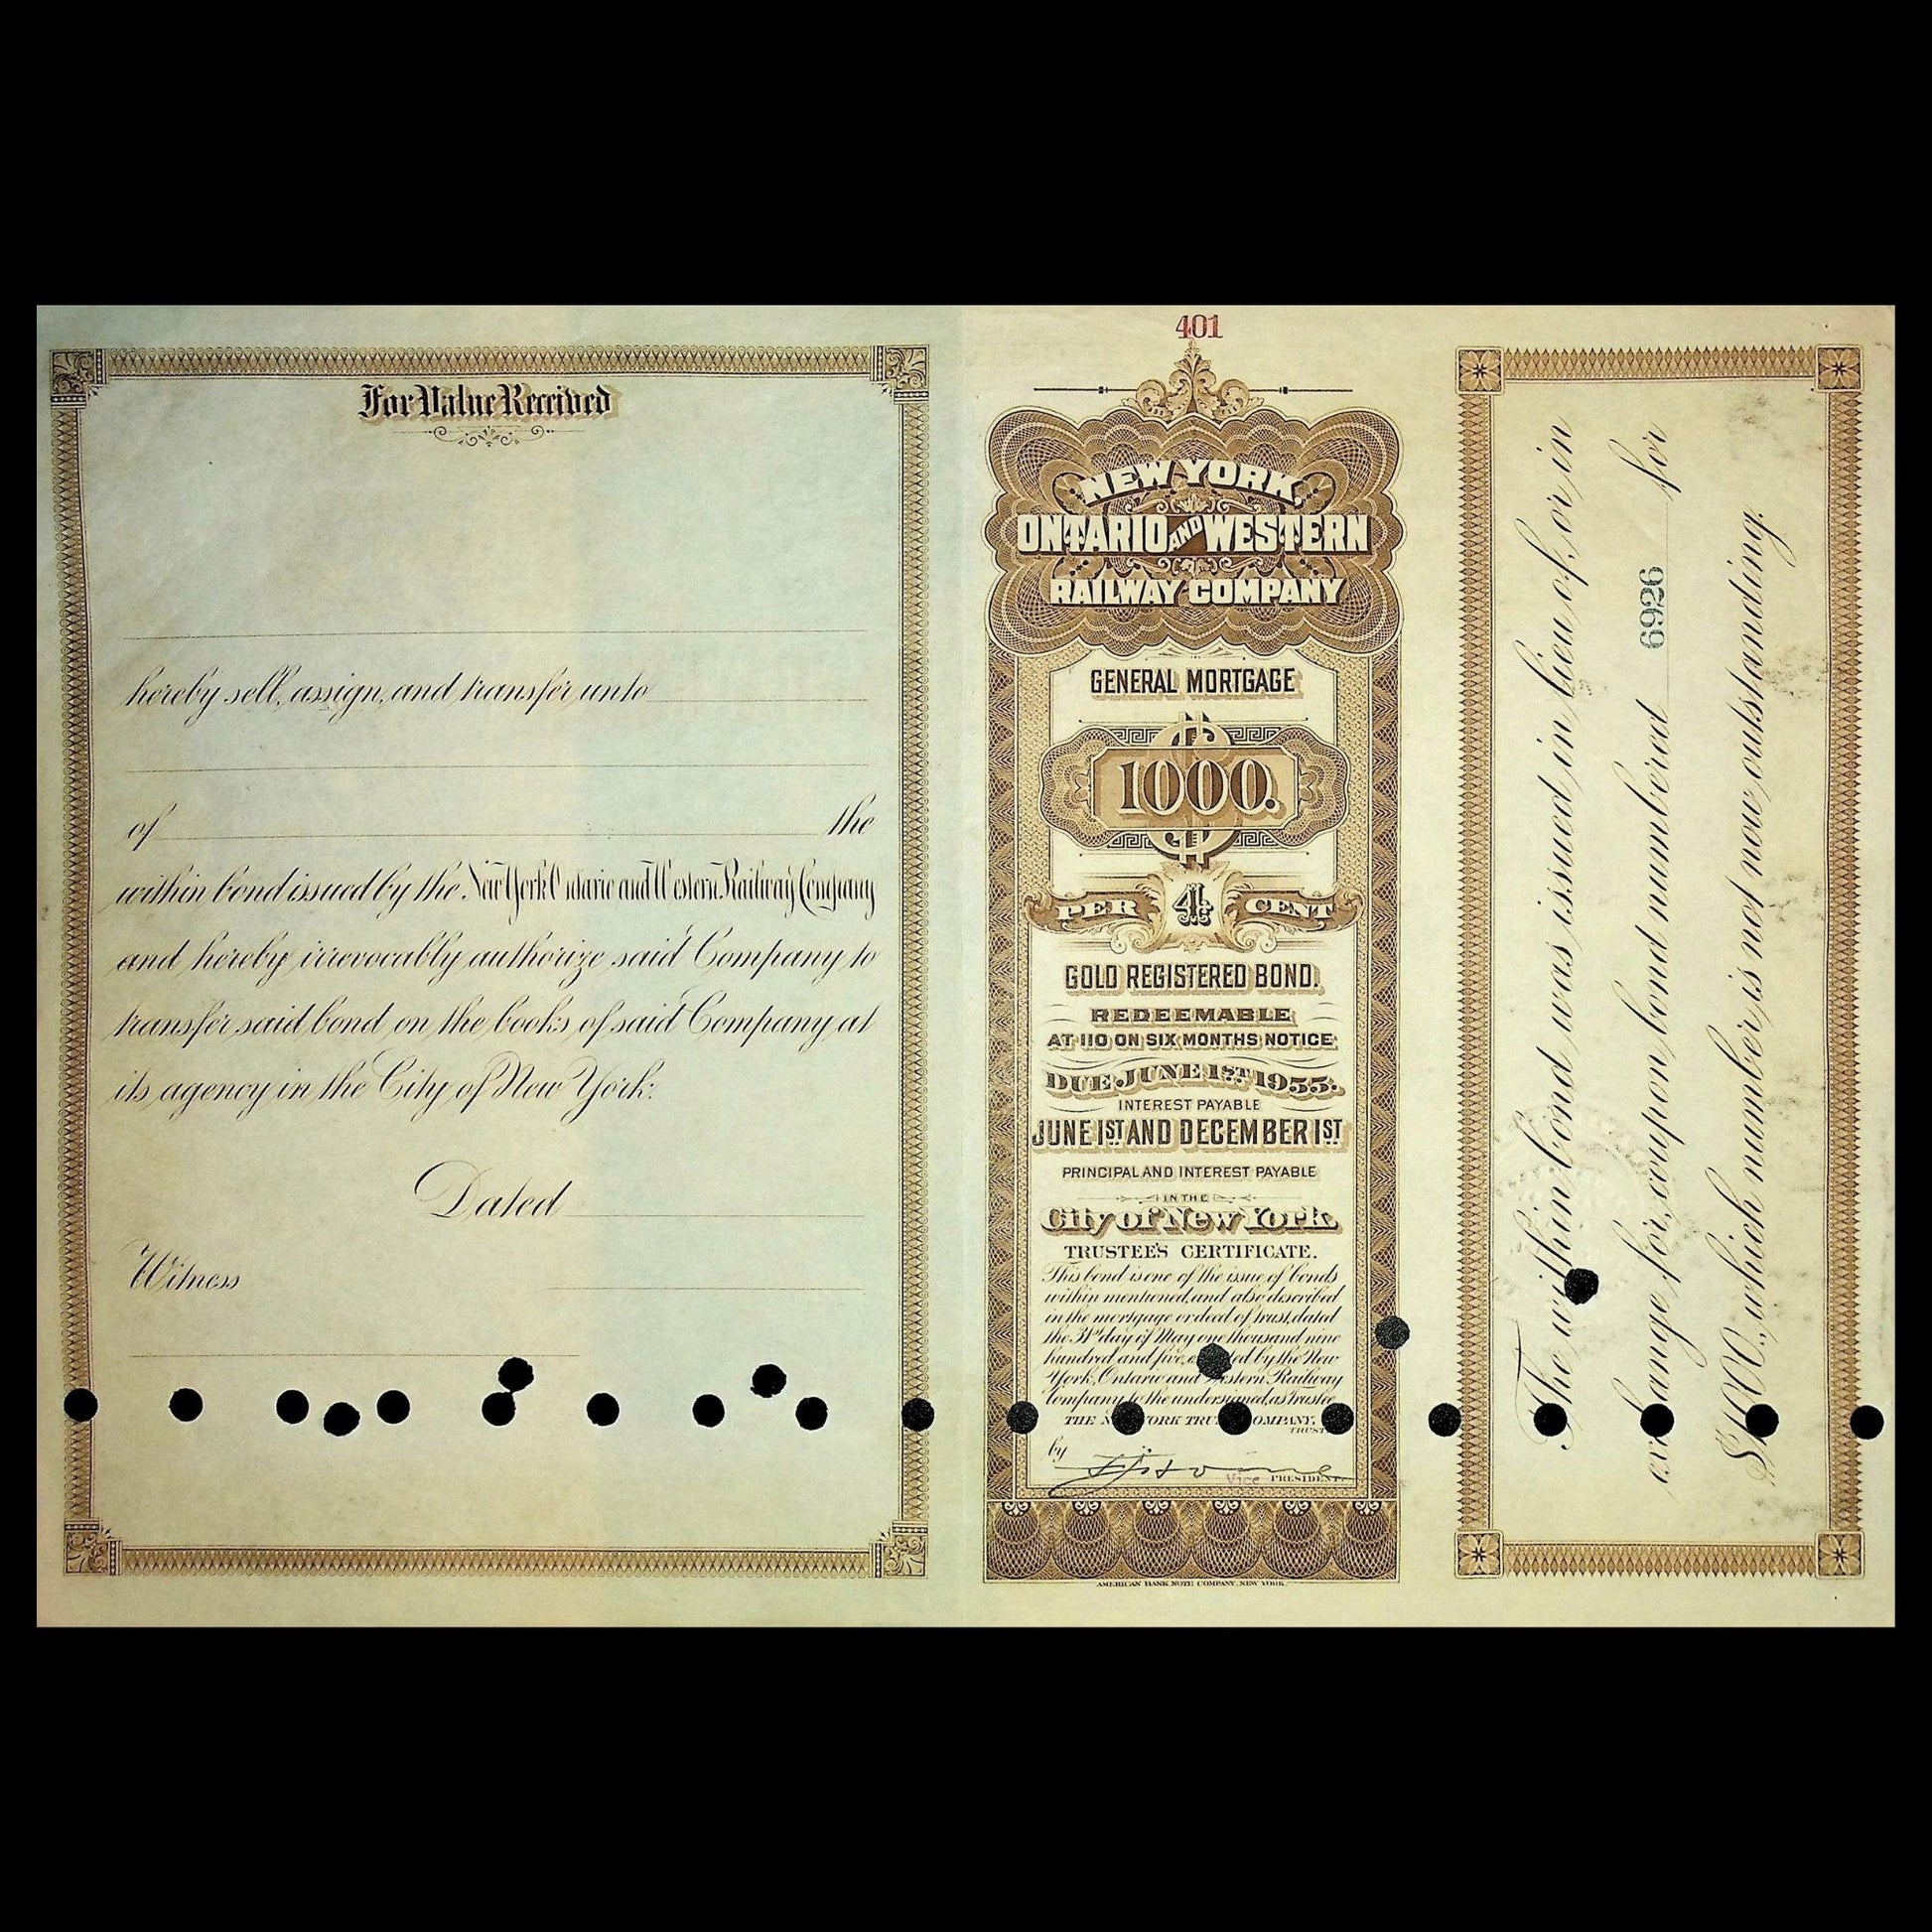 For Value Received
hereby sell, assign, and transfer unto
of the
within bond issued by the New York Ontario and Western Railway Company
and hereby irrevocably authorize said Company to
transfer said bond on the books of said Company at
its agency in the City of New York.
Dated
Witness
401
NEW YORK,
ONTARIO AND WESTERN
RAILWAY COMPANY
GENERAL MORTGAGE
$1000.
PER 4 CENT
GOLD REGISTERED BOND.
REDEEMABLE
AT 110 ON SIX MONTHS NOTICE
DUE JUNE 1ST 1955.
INTEREST PAYABLE
JUNE 1ST AND DECEMBER 1ST
PRINCIPAL AND INTEREST PAYABLE
IN THE
City of New York.
TRUSTEE'S CERTIFICATE.
This bond is one of the issue of bonds
within mentioned, and also described
in the mortgage or deed of trust, dated
the 31st day of May one thousand nine
hundred and five, by the New
York, Ontario and Western Railway
Company to the undersigned, as trustee
THE NEW YORK TRUST COMPANY,
TRUSTEE
by
Vice PRESIDENT.
AMERICAN BANK NOTE COMPANY, NEW YORK.
The within bond was issued in lieu of, or in
exchange for, coupon bond numbered 6926 for
$1000, which number is not now outstanding.